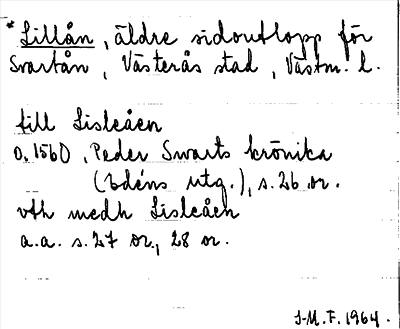 * Lillån, äldre sidoutlopp för
Svartån, Västerås stad, Västm. l.
till Lisleåen
o. 1560, Peder Swarts krönika
(Edéns utg.), s. 26 or.
vth medh Lisleåen
a.a. s. 27 or, 28 or.
J-M. F. 1964.